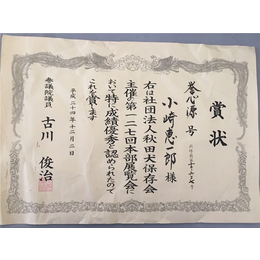 賞状
誉心源 号
小崎恵一郎 様
右は社団法人秋田犬保存会
主催の第一二七回本部展覧会に
おいて特に成績優秀と認められたので
これを賞します
平成二十四年十二月二日
参議院議員
古川 俊治